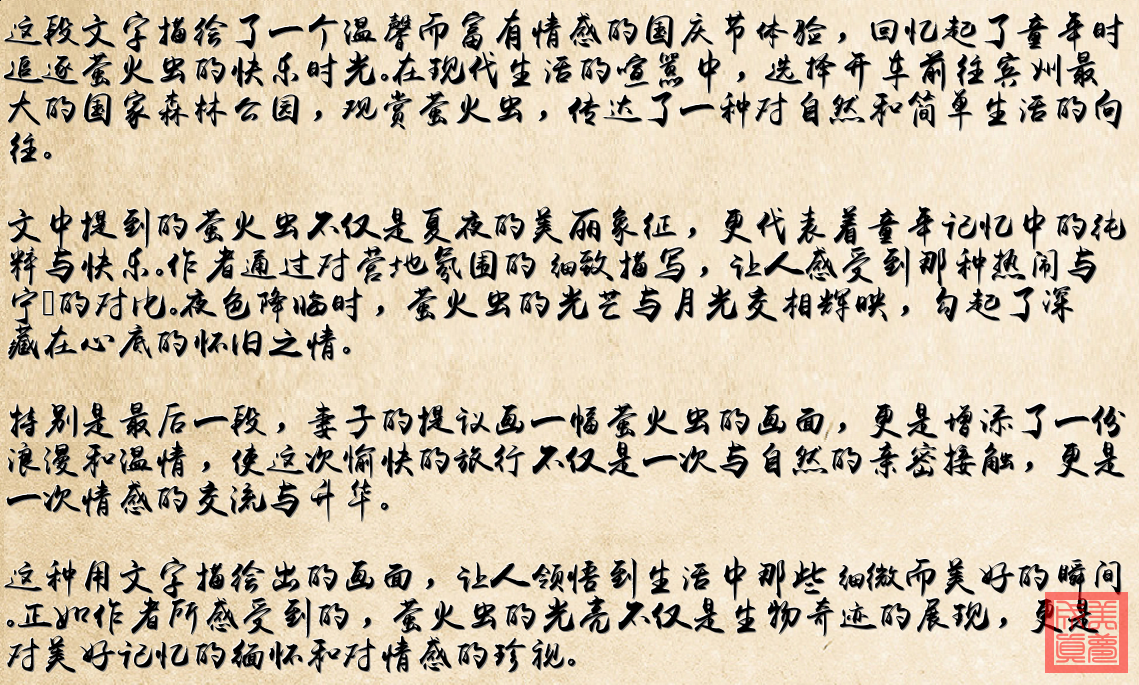 这段文字描绘了一个温馨而富有情感的国庆节体验，回忆起了童年时
追逐萤火虫的快乐时光。在现代生活的喧嚣中，选择开车前往宾州最
大的国家森林公园，观赏萤火虫，传达了一种对自然和简单生活的向
往。
文中提到的萤火虫不仅是夏夜的美丽象征，更代表着童年记忆中的纯
粹与快乐。作者通过对营地氛围的细致描写，让人感受到那种热闹与
宁的对比。夜色降临时，萤火虫的光芒与月光交相辉映，勾起了深
藏在心底的怀旧之情。
特别是最后一段，妻子的提议画一幅萤火虫的画面，更是增添了一份
浪漫和温情，使这次愉快的旅行不仅是一次与自然的亲密接触，更是
一次情感的交流与升华。
这种用文字描绘出的画面，让人领悟到生活中那些细微而美好的瞬间
。正如作者所感受到的，萤火虫的光亮不仅是生物奇迹的展现，更是
对美好记忆的缅怀和对情感的珍视。